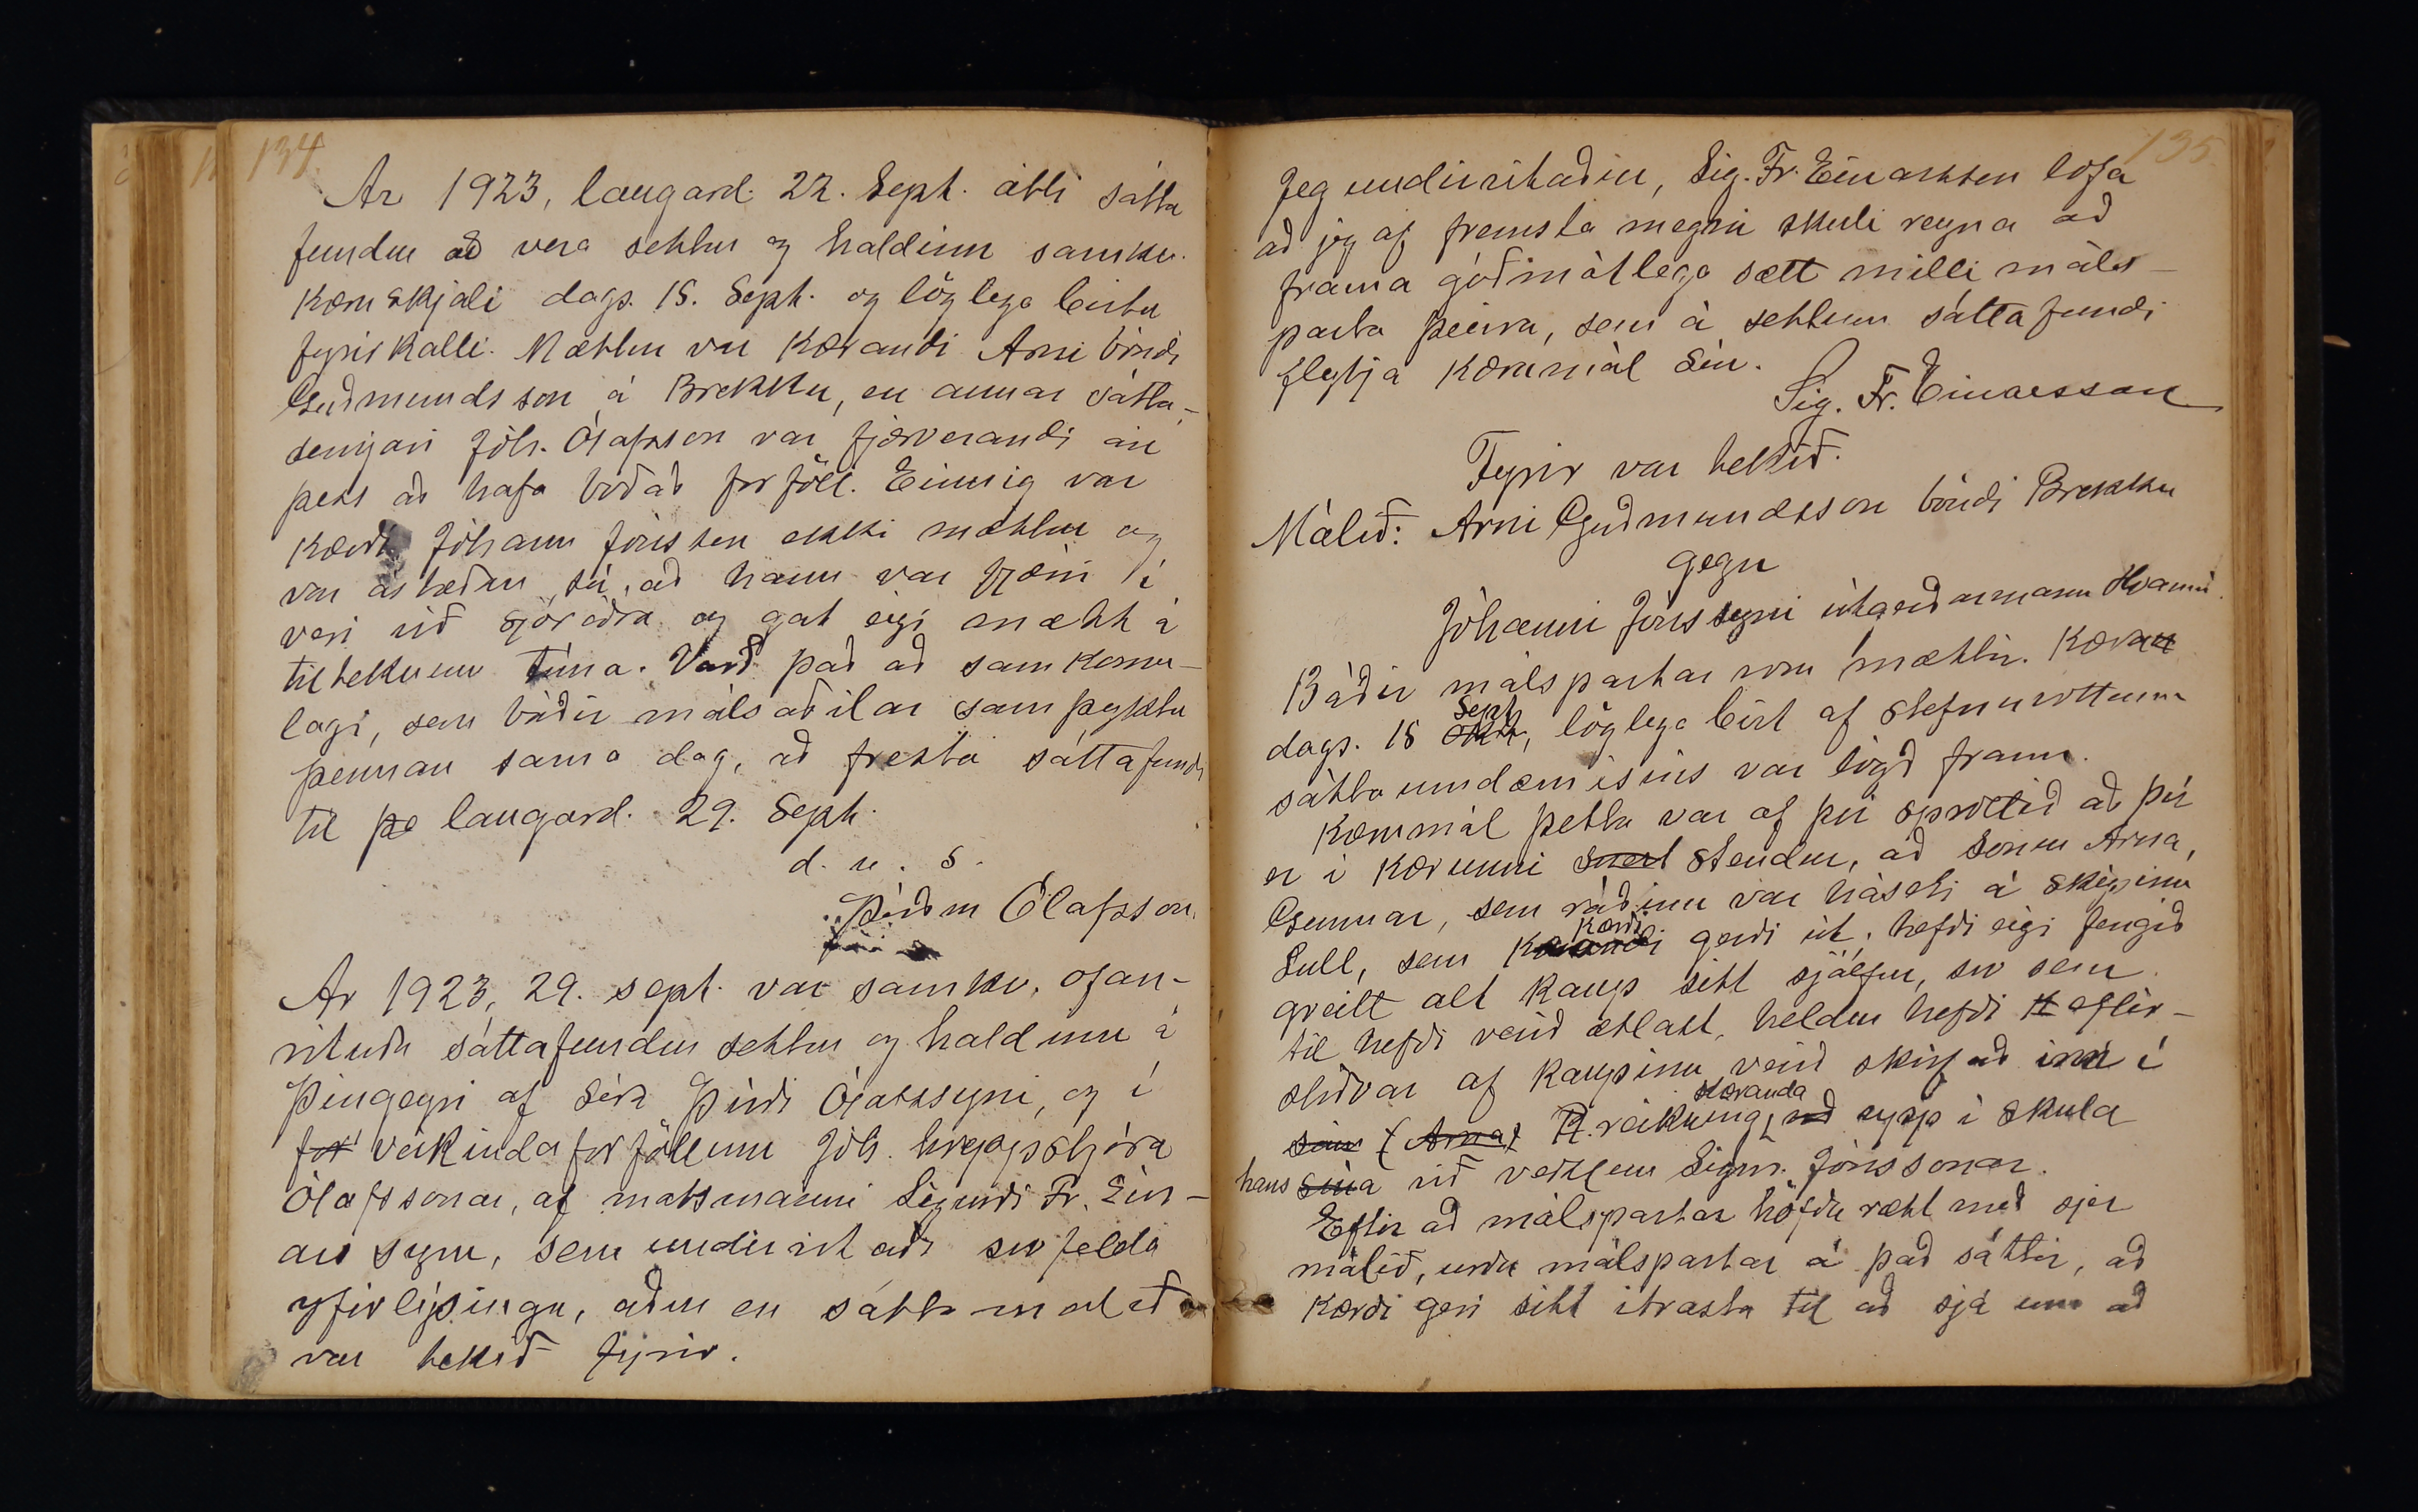 134
Ár 1923, laugard. 22. Sept. átti sátta
fundur að vera settur og haldinn samkv.
kæruskjali dags. 15. Sept. og löglega birtu
fyrirkalli. Mættur var kærandi Árni bóndi
Guðmundsson á Brekku, en annar sátta-
semjari Jóh. Ólafsson var fjærverandi án
þess að hafa boðað forföll. Einnig var
kærði Jóhann Jónsson ekki mættur og
var ástæðan sú, að hann var fram í
veri við sjóróðra og gat eigi mætt á
tilteknum tíma. Varð það að samkomu-
lagi, sem báðir málsaðilar samþyktu
þennan sama dag, að fresta sáttafundi
til þe laugard. 29. Sept.
d. u. s.
Þórður Ólafsson.
Ár 1923, 29. sept. var samkv. ofan-
rituðu sáttafundur settur og haldinn á
Þingeyri af Séra Þórði Ólafssyni, og í
for veikindaforföllum Jóh. hreppstjóra
Ólafssonar, af matsmanni Sigurði Fr. Ein-
arssyni, sem undirritaði svofelda
yfirlýsingu, áður en sáttamálið
var tekið fyrir.
135.
Jeg undirritaður, Sig. Fr. Einarsson lofa
að jeg af fremsta megni skuli reyna að
frama góðmótlega sætt milli máls-
parta þeirra, sem á settum sáttafundi
flytja kærumál sín.
Sig. Fr. Einarsson
Fyrir var tekið.
Málið: Árni Guðmundsson bóndi Brekku
gegn
Jóhanni Jónssyni útgerðarmann Hvammi.
Báðir málspartar voru mættir. Kæran
dags. 15 Sept, löglega birt af stefnuvottum
sáttaumdæmisins var lögð fram.
Kærumál þetta var af því sprottið að því
er í kærunni stendur, að sonur Árna,
Gunnar, sem ráðinn var háseti á skipinu
Lull, sem kærði gerði út, hefði eigi fengið
greitt alt kaup sitt sjálfur, svo sem
til hefði verið ætlast, heldur hefði eftir-
stöðvar af kaupinu verið skrifað inn í
sinn (Árna) R. reikning kæranda upp í skuld
hans sína við verzlun Sigm. Jónssonar.
Eftir að málspartar höfðu rætt með sjer
málið, urðu málspartar á það sáttir, að
kærði geri sitt ítrasta til að sjá um að